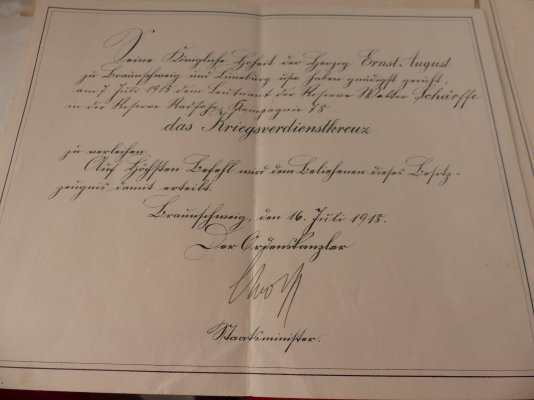 Seine Königliche Hoheit der Herzog Ernst August
zu Braunschweig und Lüneburg usw. haben gnädigst geruht,
am 7 Juli 1918 dem Leutnant der Reserve Walter Schärffe
in der Reserve Radfahr Kompagnie 78
das Kriegsverdienstkreuz
zu verleihen.
Auf Höchsten Befehl wird dem Beliehenen dieses Besitz-
zeugnis damit erteilt.
Braunschweig, den 16. Juli 1918.
Der Ordenskanzler
Staatsminister.